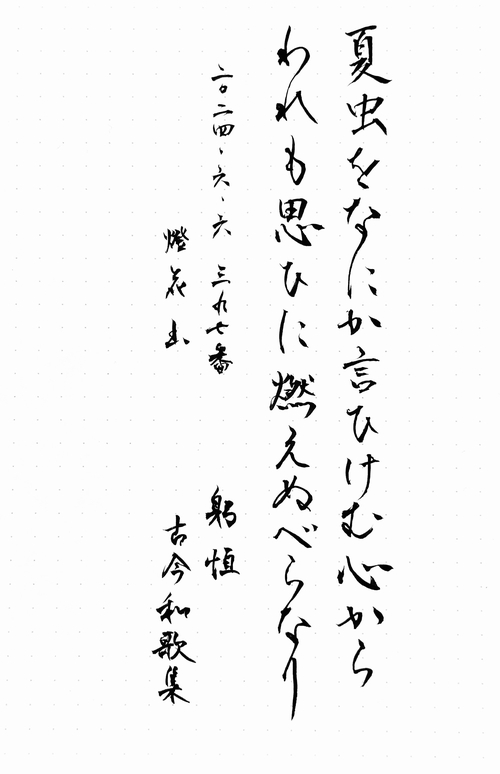 夏虫をなにか言ひけむ心から
われも思ひに燃えぬべらなり
二〇二四、六、六 三九七番
燈花
躬恒
古今和歌集